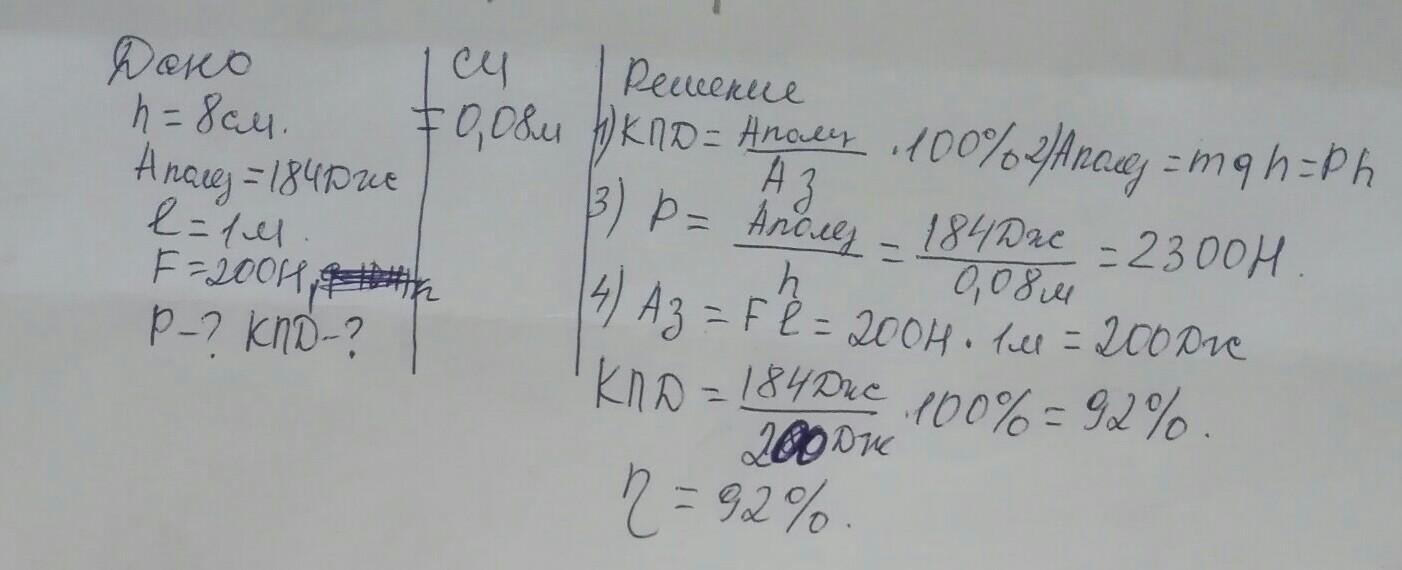 Дано
h = 8см.
Аполез = 184Дж
l = 1м.
F = 200Н,
P-? КПД-?
СИ
= 0,08м
Решение
1) КПД = Аполез / Аз · 100% 2) Аполез = mgh = Ph
3) P = Аполез / h = 184Дж / 0,08м = 2300Н.
4) Аз = Fl = 200Н · 1м = 200Дж
КПД = 184Дж / 200Дж · 100% = 92%.
η = 92%.